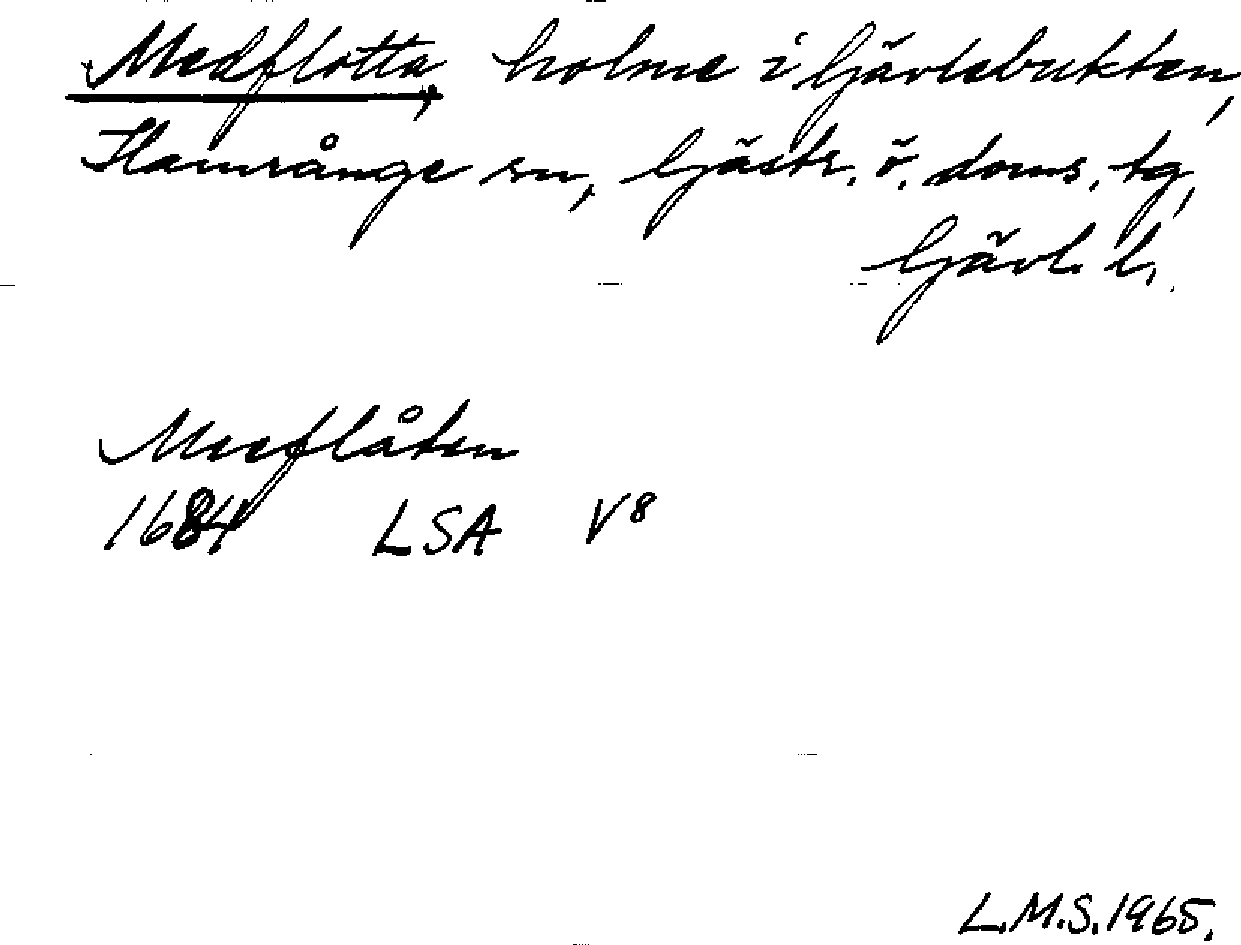 Medflotta, holme i Gävlebukten,
Hamrånge sn, Gästr. ö. doms. tg,
Gävl. l.
Meeflåten
1684 LSA V8
L.M.S. 1965.